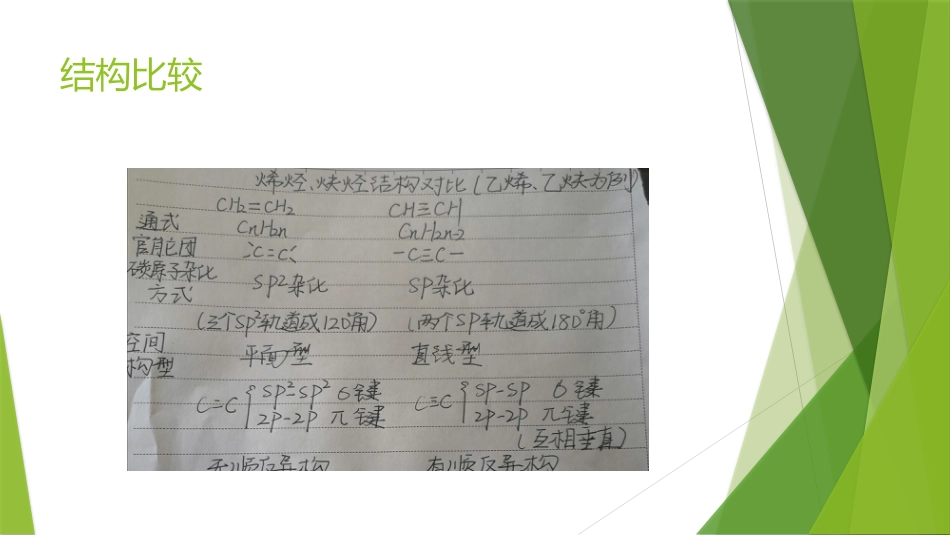 结构比较
烯烃、炔烃结构对比(乙烯、乙炔为例)
CH2=CH2 CH≡CH
通式 CnH2n CnH2n-2
官能团 >C=C< -C≡C-
碳原子杂化方式 SP2杂化 SP杂化
(三个SP2轨道成120°角) (两个SP轨道成180°角)
空间构型 平面型 直线型
C=C { SP2-SP2 σ键 C≡C { SP-SP σ键
2P-2P π键 2P-2P π键
(互相垂直)
无顺反异构 有顺反异构